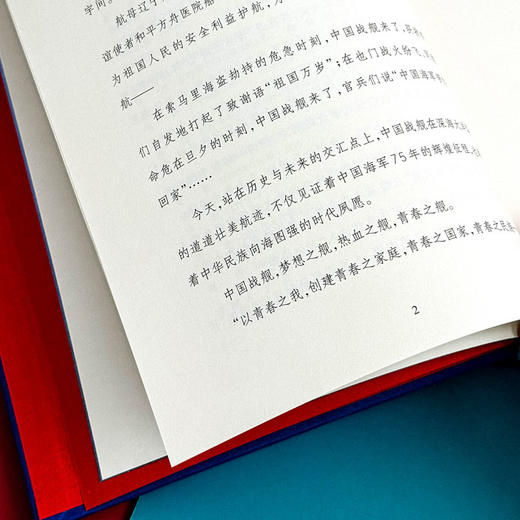 字问。
航母辽宁
谊使者和平方舟医院船
为祖国人民的安全利益护航，为
航——
在索马里海盗劫持的危急时刻，中国战舰来了，获救
们自发地打起了致谢语“祖国万岁”；在也门战火纷飞、
命危在旦夕的时刻，中国战舰来了，官兵们说“中国海军
回家”……
今天，站在历史与未来的交汇点上，中国战舰在深海大
的道道壮美航迹，不仅见证着中国海军75年的辉煌征程，
着中华民族向海图强的时代夙愿。
中国战舰，梦想之舰，热血之舰，青春之舰。
“以青春之我，创建青春之家庭，青春之国家，青春之民
2